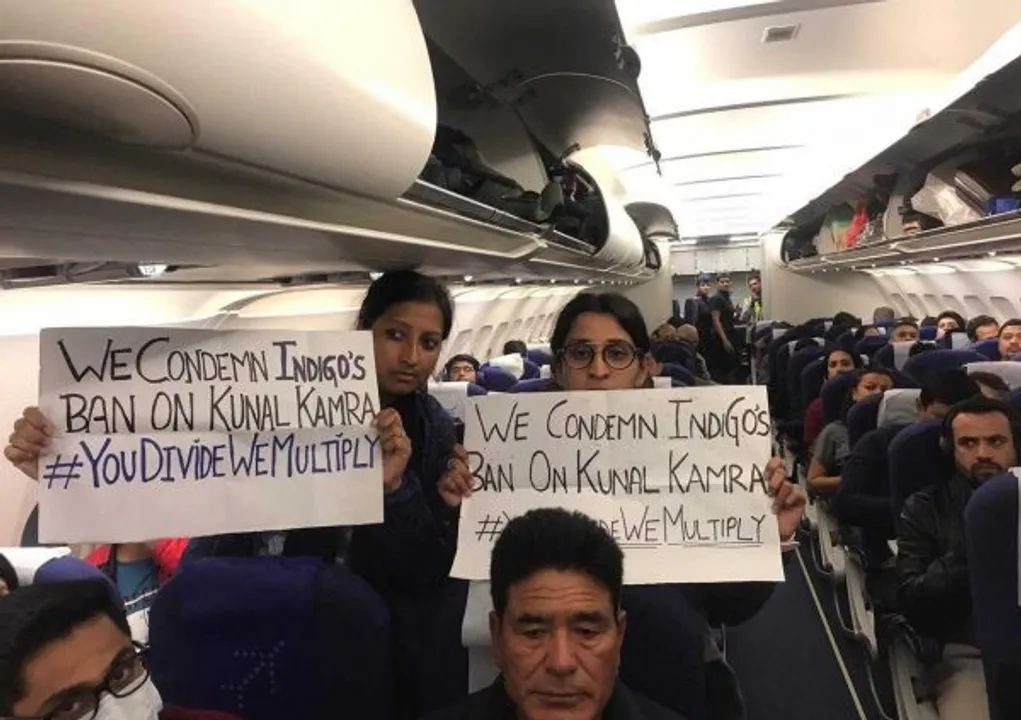 WE CONDEMN INDIGO'S
BAN ON KUNAL KAMRA
#YOUDIVIDEWEMULTIPLY
WE CONDEMN INDIGO'S
BAN ON KUNAL KAMRA
DEWEMULTIPLY